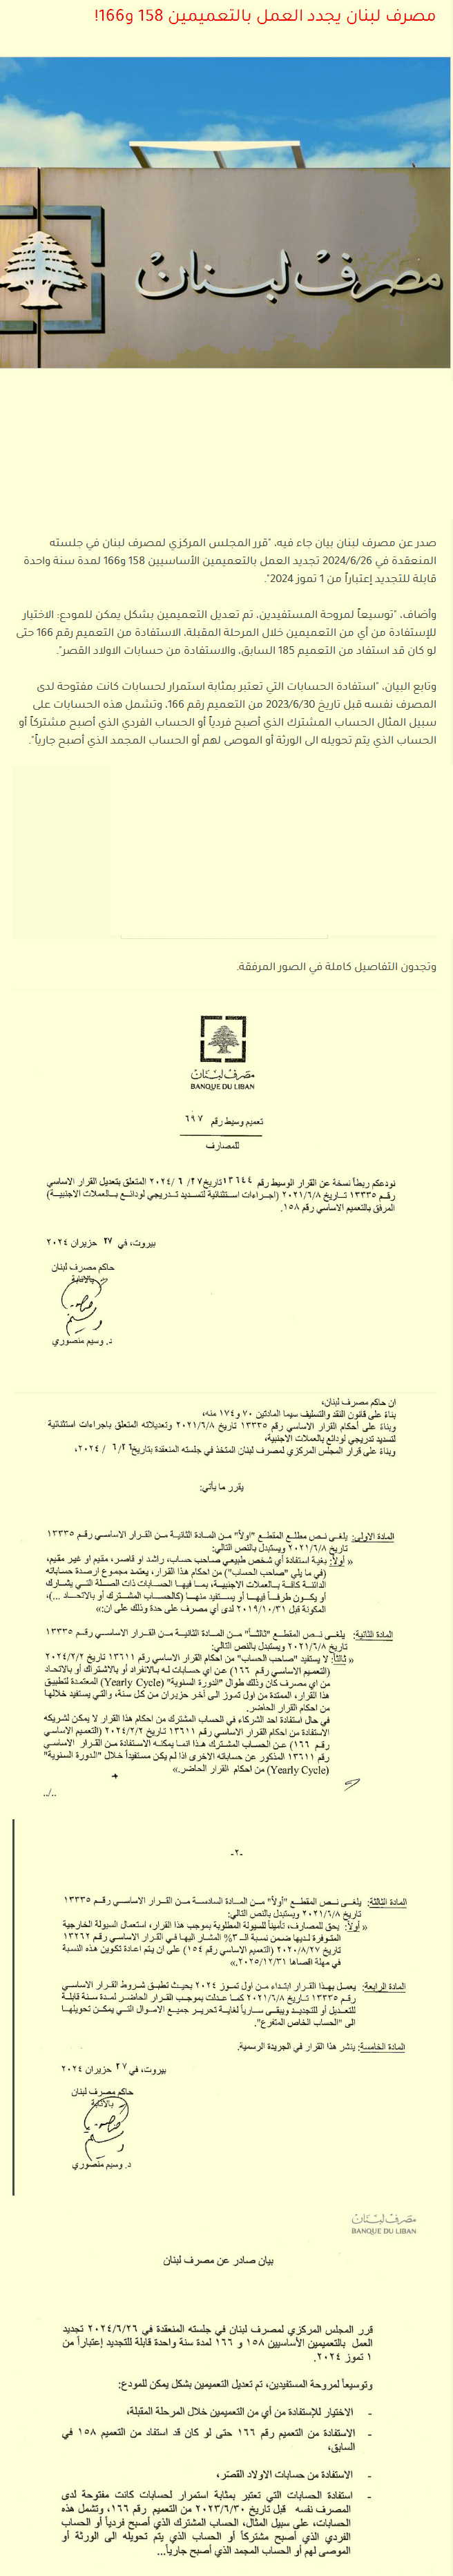 مصرف لبنان يجدد العمل بالتعميمين 158 و166!
مصرف لبنان
صدر عن مصرف لبنان بيان جاء فيه، "قرر المجلس المركزي لمصرف لبنان في جلسته
المنعقدة في 2024/6/26 تجديد العمل بالتعميمين الأساسيين 158 و166 لمدة سنة واحدة
قابلة للتجديد إعتباراً من 1 تموز 2024".
وأضاف، "توسيعاً لمروحة المستفيدين، تم تعديل التعميمين بشكل يمكن للمودع: الاختيار
للإستفادة من أي من التعميمين خلال المرحلة المقبلة، الاستفادة من التعميم رقم 166 حتى
لو كان قد استفاد من التعميم 185 السابق، والاستفادة من حسابات الاولاد القصر".
وتابع البيان، "استفادة الحسابات التي تعتبر بمثابة استمرار لحسابات كانت مفتوحة لدى
المصرف نفسه قبل تاريخ 2023/6/30 من التعميم رقم 166، وتشمل هذه الحسابات على
سبيل المثال الحساب المشترك الذي أصبح فردياً أو الحساب الفردي الذي أصبح مشتركاً أو
الحساب الذي يتم تحويله الى الورثة أو الموصى لهم أو الحساب المجمد الذي أصبح جارياً".
وتجدون التفاصيل كاملة في الصور المرفقة.
مصرف لبنان
BANQUE DU LIBAN
تعميم وسيط رقم ٦٩٧
للمصارف
نودعكم ربطاً نسخة عن القرار الوسيط رقم ١٣٦٤٤ تاريخ ٢٧/ ٦ /٢٠٢٤ المتعلق بتعديل القرار الاساسي
رقم ١٣٣٣٥ تاريخ ٢٠٢١/٦/٨ (اجراءات استثنائية لتسديد تدريجي لودائع بالعملات الاجنبية)
المرفق بالتعميم الاساسي رقم ١٥٨.
بيروت، في ٢٧ حزيران ٢٠٢٤
حاكم مصرف لبنان
بالإنابة
د. وسيم منصوري
ان حاكم مصرف لبنان،
بناءً على قانون النقد والتسليف سيما المادتين ٧٠ و١٧٤ منه،
وبناءً على أحكام القرار الاساسي رقم ١٣٣٣٥ تاريخ ٢٠٢١/٦/٨ وتعديلاته المتعلق باجراءات استثنائية
لتسديد تدريجي لودائع بالعملات الاجنبية،
وبناءً على قرار المجلس المركزي لمصرف لبنان المتخذ في جلسته المنعقدة بتاريخ ٢٦/ ٦ / ٢٠٢٤،
يقرر ما يأتي:
المادة الاولى: يلغى نص مطلع المقطع "اولاً" من المادة الثانية من القرار الاساسي رقم ١٣٣٣٥
تاريخ ٢٠٢١/٦/٨ ويستبدل بالنص التالي:
« أولاً: بغية استفادة أي شخص طبيعي صاحب حساب، راشد او قاصر، مقيم او غير مقيم،
(في ما يلي "صاحب الحساب") من احكام هذا القرار، يعتمد مجموع ارصدة حساباته
الدائنة كافة بالعملات الاجنبية، بما فيها الحسابات ذات الصلة التي يشارك
أو يكون طرفاً فيها أو يستفيد منها (كالحساب المشترك أو بالاتحاد ...)،
المكونة قبل ٢٠١٩/١٠/٣١ لدى أي مصرف على حدة وذلك على ان:»
المادة الثانية: يلغى نص المقطع "ثالثاً" من المادة الثانية من القرار الاساسي رقم ١٣٣٣٥
تاريخ ٢٠٢١/٦/٨ ويستبدل بالنص التالي:
« ثالثاً: لا يستفيد "صاحب الحساب" من احكام القرار الاساسي رقم ١٣٦١١ تاريخ ٢٠٢٤/٢/٢
(التعميم الاساسي رقم ١٦٦) عن اي حسابات له بالانفراد أو بالاشتراك أو بالاتحاد
من اي مصرف كان وذلك طوال "الدورة السنوية" (Yearly Cycle) المعتمدة لتطبيق
هذا القرار، الممتدة من اول تموز الى آخر حزيران من كل سنة، والتي يستفيد خلالها
من احكام القرار الحاضر.
في حال استفادة احد الشركاء في الحساب المشترك من احكام هذا القرار لا يمكن لشريكه
الاستفادة من احكام القرار الاساسي رقم ١٣٦١١ تاريخ ٢٠٢٤/٢/٢ (التعميم الاساسي
رقم ١٦٦) عن الحساب المشترك هذا انما يمكنه الاستفادة من القرار الاساسي
رقم ١٣٦١١ المذكور عن حساباته الاخرى اذا لم يكن مستفيداً خلال "الدورة السنوية"
(Yearly Cycle) من احكام القرار الحاضر.»
../..
-٢-
المادة الثالثة: يلغى نص المقطع "أولاً" من المادة السادسة من القرار الاساسي رقم ١٣٣٣٥
تاريخ ٢٠٢١/٦/٨ ويستبدل بالنص التالي:
« أولاً: يحق للمصارف، تأميناً للسيولة المطلوبة بموجب هذا القرار، استعمال السيولة الخارجية
المتوفرة لديها ضمن نسبة الـ ٣% المشار اليها في القرار الاساسي رقم ١٣٢٦٢
تاريخ ٢٠٢٠/٨/٢٧ (التعميم الاساسي رقم ١٥٤) على ان يتم اعادة تكوين هذه النسبة
في مهلة اقصاها ٢٠٢٥/١٢/٣١.»
المادة الرابعة: يعمل بهذا القرار ابتداء من اول تموز ٢٠٢٤ بحيث تطبق شروط القرار الاساسي
رقم ١٣٣٣٥ تاريخ ٢٠٢١/٦/٨ كما عدلت بموجب القرار الحاضر لمدة سنة قابلة
للتعديل أو للتجديد ويبقى سارياً لغاية تحرير جميع الاموال التي يمكن تحويلها
الى "الحساب الخاص المتفرع".
المادة الخامسة: ينشر هذا القرار في الجريدة الرسمية.
بيروت، في ٢٧ حزيران ٢٠٢٤
حاكم مصرف لبنان
بالانابة
د. وسيم منصوري
مصرف لبنان
BANQUE DU LIBAN
بيان صادر عن مصرف لبنان
قرر المجلس المركزي لمصرف لبنان في جلسته المنعقدة في ٢٠٢٤/٦/٢٦ تجديد
العمل بالتعميمين الأساسيين ١٥٨ و ١٦٦ لمدة سنة واحدة قابلة للتجديد إعتباراً من
١ تموز ٢٠٢٤.
وتوسيعاً لمروحة المستفيدين، تم تعديل التعميمين بشكل يمكن للمودع:
- الاختيار للإستفادة من أي من التعميمين خلال المرحلة المقبلة،
- الاستفادة من التعميم رقم ١٦٦ حتى لو كان قد استفاد من التعميم ١٥٨ في
السابق،
- الاستفادة من حسابات الاولاد القصّر،
- استفادة الحسابات التي تعتبر بمثابة استمرار لحسابات كانت مفتوحة لدى
المصرف نفسه قبل تاريخ ٢٠٢٣/٦/٣٠ من التعميم رقم ١٦٦، وتشمل هذه
الحسابات، على سبيل المثال، الحساب المشترك الذي أصبح فردياً أو الحساب
الفردي الذي أصبح مشتركاً أو الحساب الذي يتم تحويله الى الورثة أو
الموصى لهم أو الحساب المجمد الذي أصبح جارياً...